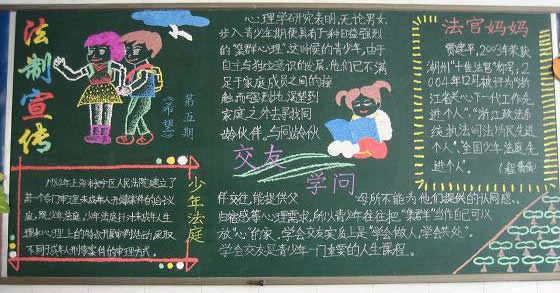 法制宣传
第五期
《希望》
心理学研究表明,无论男女,
步入青少年期便具有了种日益强烈
的"集群心理"。这时候的青少年,由于
自主与独立意识的发展,他们已不满
足于家庭成员之间的接
触,而强烈地渴望到
家庭之外去寻找同
龄伙伴。与同龄伙
交友
学问
伴交往,能提供父
母所不能为他们提供的认同感、
归宿感等心理需求,所以青少年在在起"集群"当作自己可以
放"心"的家。学会交友实际上是"学会做人,学会共处"。
学会交友是青少年一门重要的人生课程。
法官妈妈
贾建平,2003年荣获
湖州"十佳法官"称号;2
004年12月被评为"浙
江省关心下一代工作先
进个人"、"浙江政法系
统执法司法为民先进
个人"、全国少年法庭先
进个人"。
少年法庭
1984年上海市长宁区人民法院建立了
第一个专门审理未成年人刑事案件的合议
庭,既少年法庭。少年法庭针对未成年人生
理和心理上的特点开展审判活动,采取
不同于成年人刑事案件的审理方式。